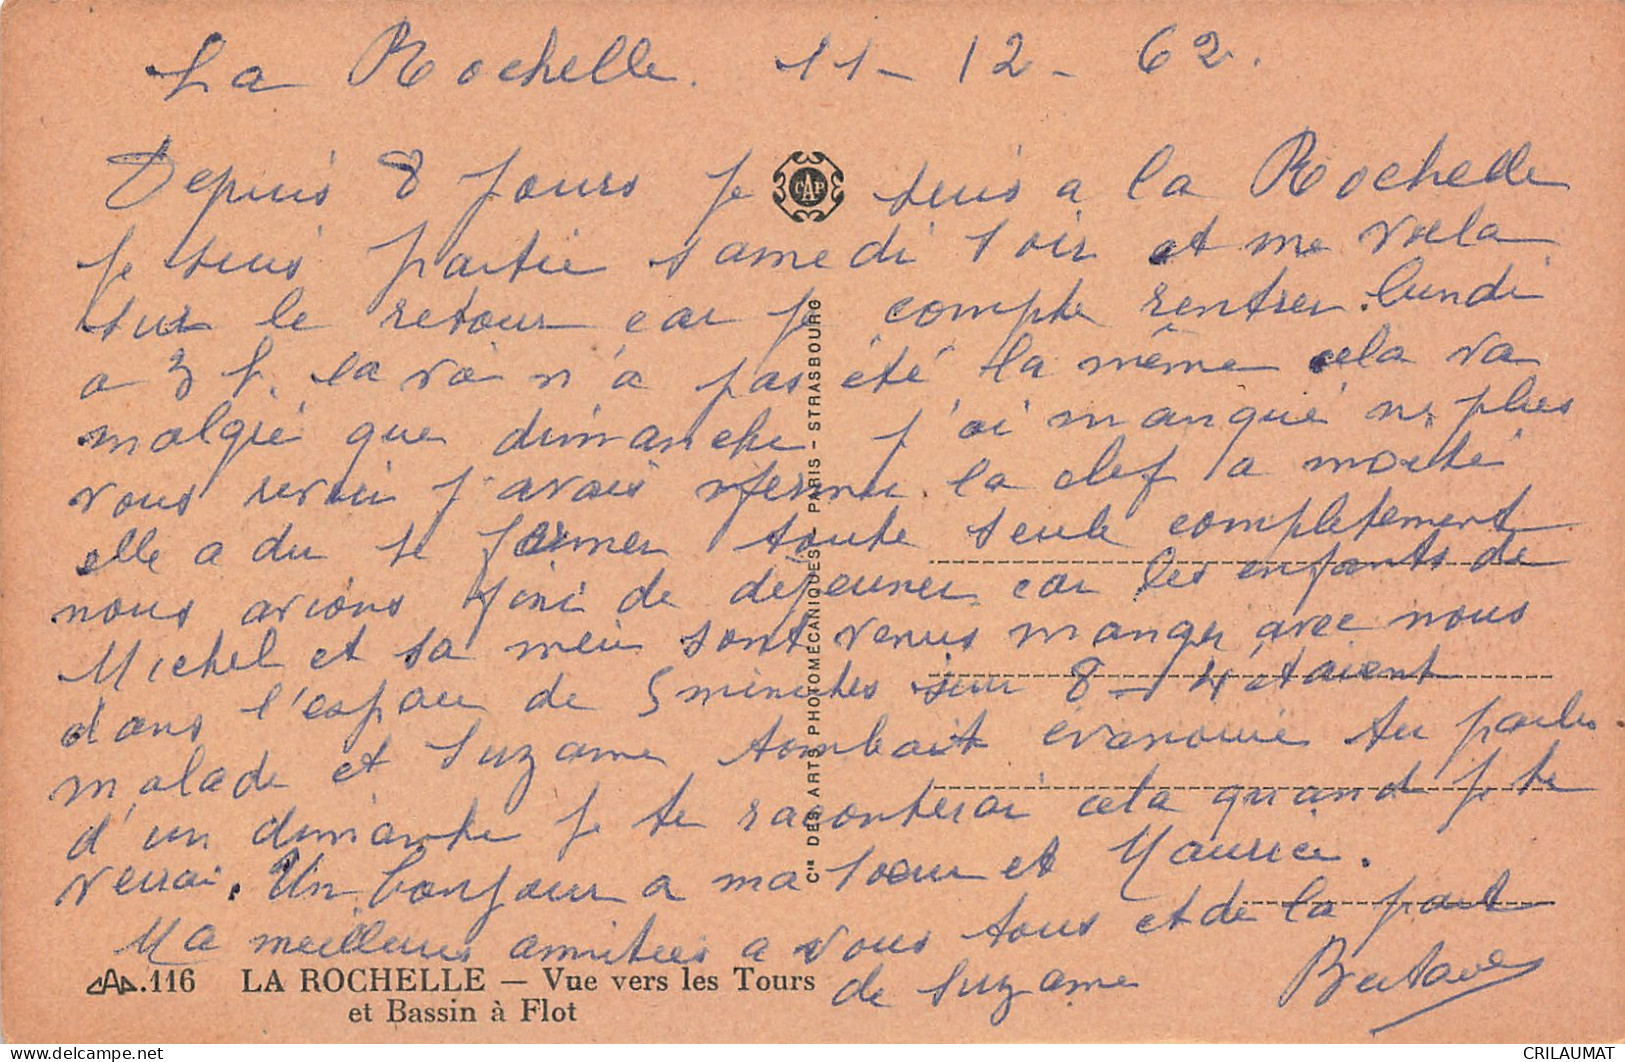 La Rochelle. 11 - 12 - 62.
Depuis 8 jours je suis a la Rochelle
CAP
je suis partie samedi soir et me voila
sur le retour car je compte rentrer lundi
a 3 h. la va n'a pas été la même cela va
malgré que dimanche j'ai manqué ne plus
vous revoir j'avais fermer la clef a moitié
elle a du se fermer toute seule completement
nous avions fini de dejeuner car les enfants de
Michel et sa meu sont venus manger avec nous
dans l'espace de 5 minutes sur 8 - 4 étaient
malade et Suzanne tombait evanouie tu parles
d'un dimanche je te raconterai cela quand je te
verrai. Un bonjour a ma soeur et Maurice.
Ma meilleures amitiees a vous tous et de la part
de Suzanne
Cie DES ARTS PHOTOMECANIQUES - PARIS - STRASBOURG
CAP.116 LA ROCHELLE — Vue vers les Tours
et Bassin à Flot
CRILAUMAT